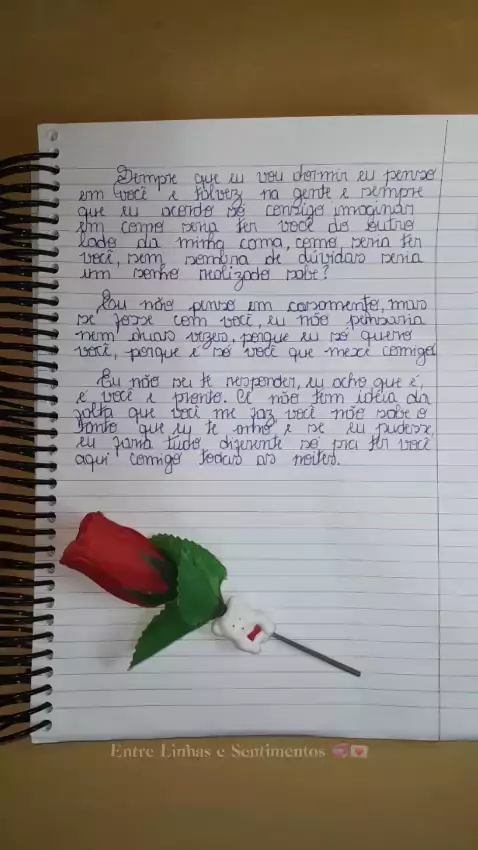 Sempre que eu vou dormir eu penso
em você e talvez na gente e sempre
que eu acordo só consigo imaginar
em como seria ter você do outro
lado da minha cama, como seria ter
você, sem sombra de dúvidas seria
um sonho realizado sabe?
Eu não penso em casamento, mas
se fosse com você, eu não pensaria
nem duas vezes, porque eu só quero
você, porque é só você que mexe comigo
Eu não sei te responder, eu acho que é,
é você e pronto. Cê não tem ideia da
falta que você me faz, você não sabe o
tanto que eu te amo e se eu pudesse,
eu faria tudo diferente só pra ter você
aqui comigo todas as noites.
Entre Linhas e Sentimentos